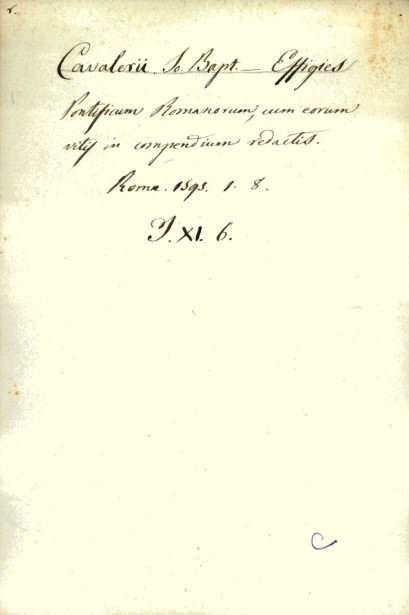 r.
Cavalerii Jo. Bapt. — Effigies
Pontificum Romanorum, cum eorum
vitis in compendium redactis.
Roma. 1595. 1. 8.
J. XI. 6.
C